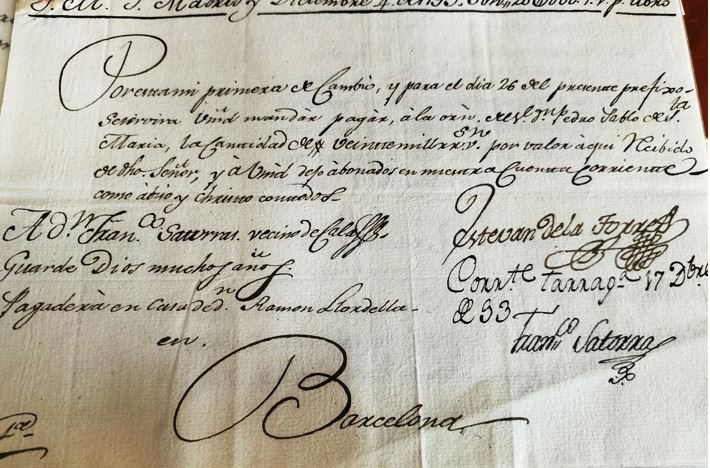 J. M. J. Madrid y Diciembre 4. de 1733. Son 20@000. r. v. p.
Por esta mi primera de Cambio, y para el dia 26 del presente prefixo
Se servira Vmd mandar pagar, à la orn. del Sr. Dn. Pedro Pablo de Sta.
Maria, la Cantidad de veinte mill rrs. vn. por valor àqui Recibido
de dho. Señor, y à Vmd dejo abonados en nuestra Cuenta Corriente
como abiso y christo con todos
A dn. Franco. Satorras. vecino de Calaff
Guarde Dios muchos años.
Pagadera en Casa de dn. Ramon Llordella
en.
Barcelona
Estevan de la Torre
Corrte. Tarraga. 17 Dbre
de 33
Franco. Satorra